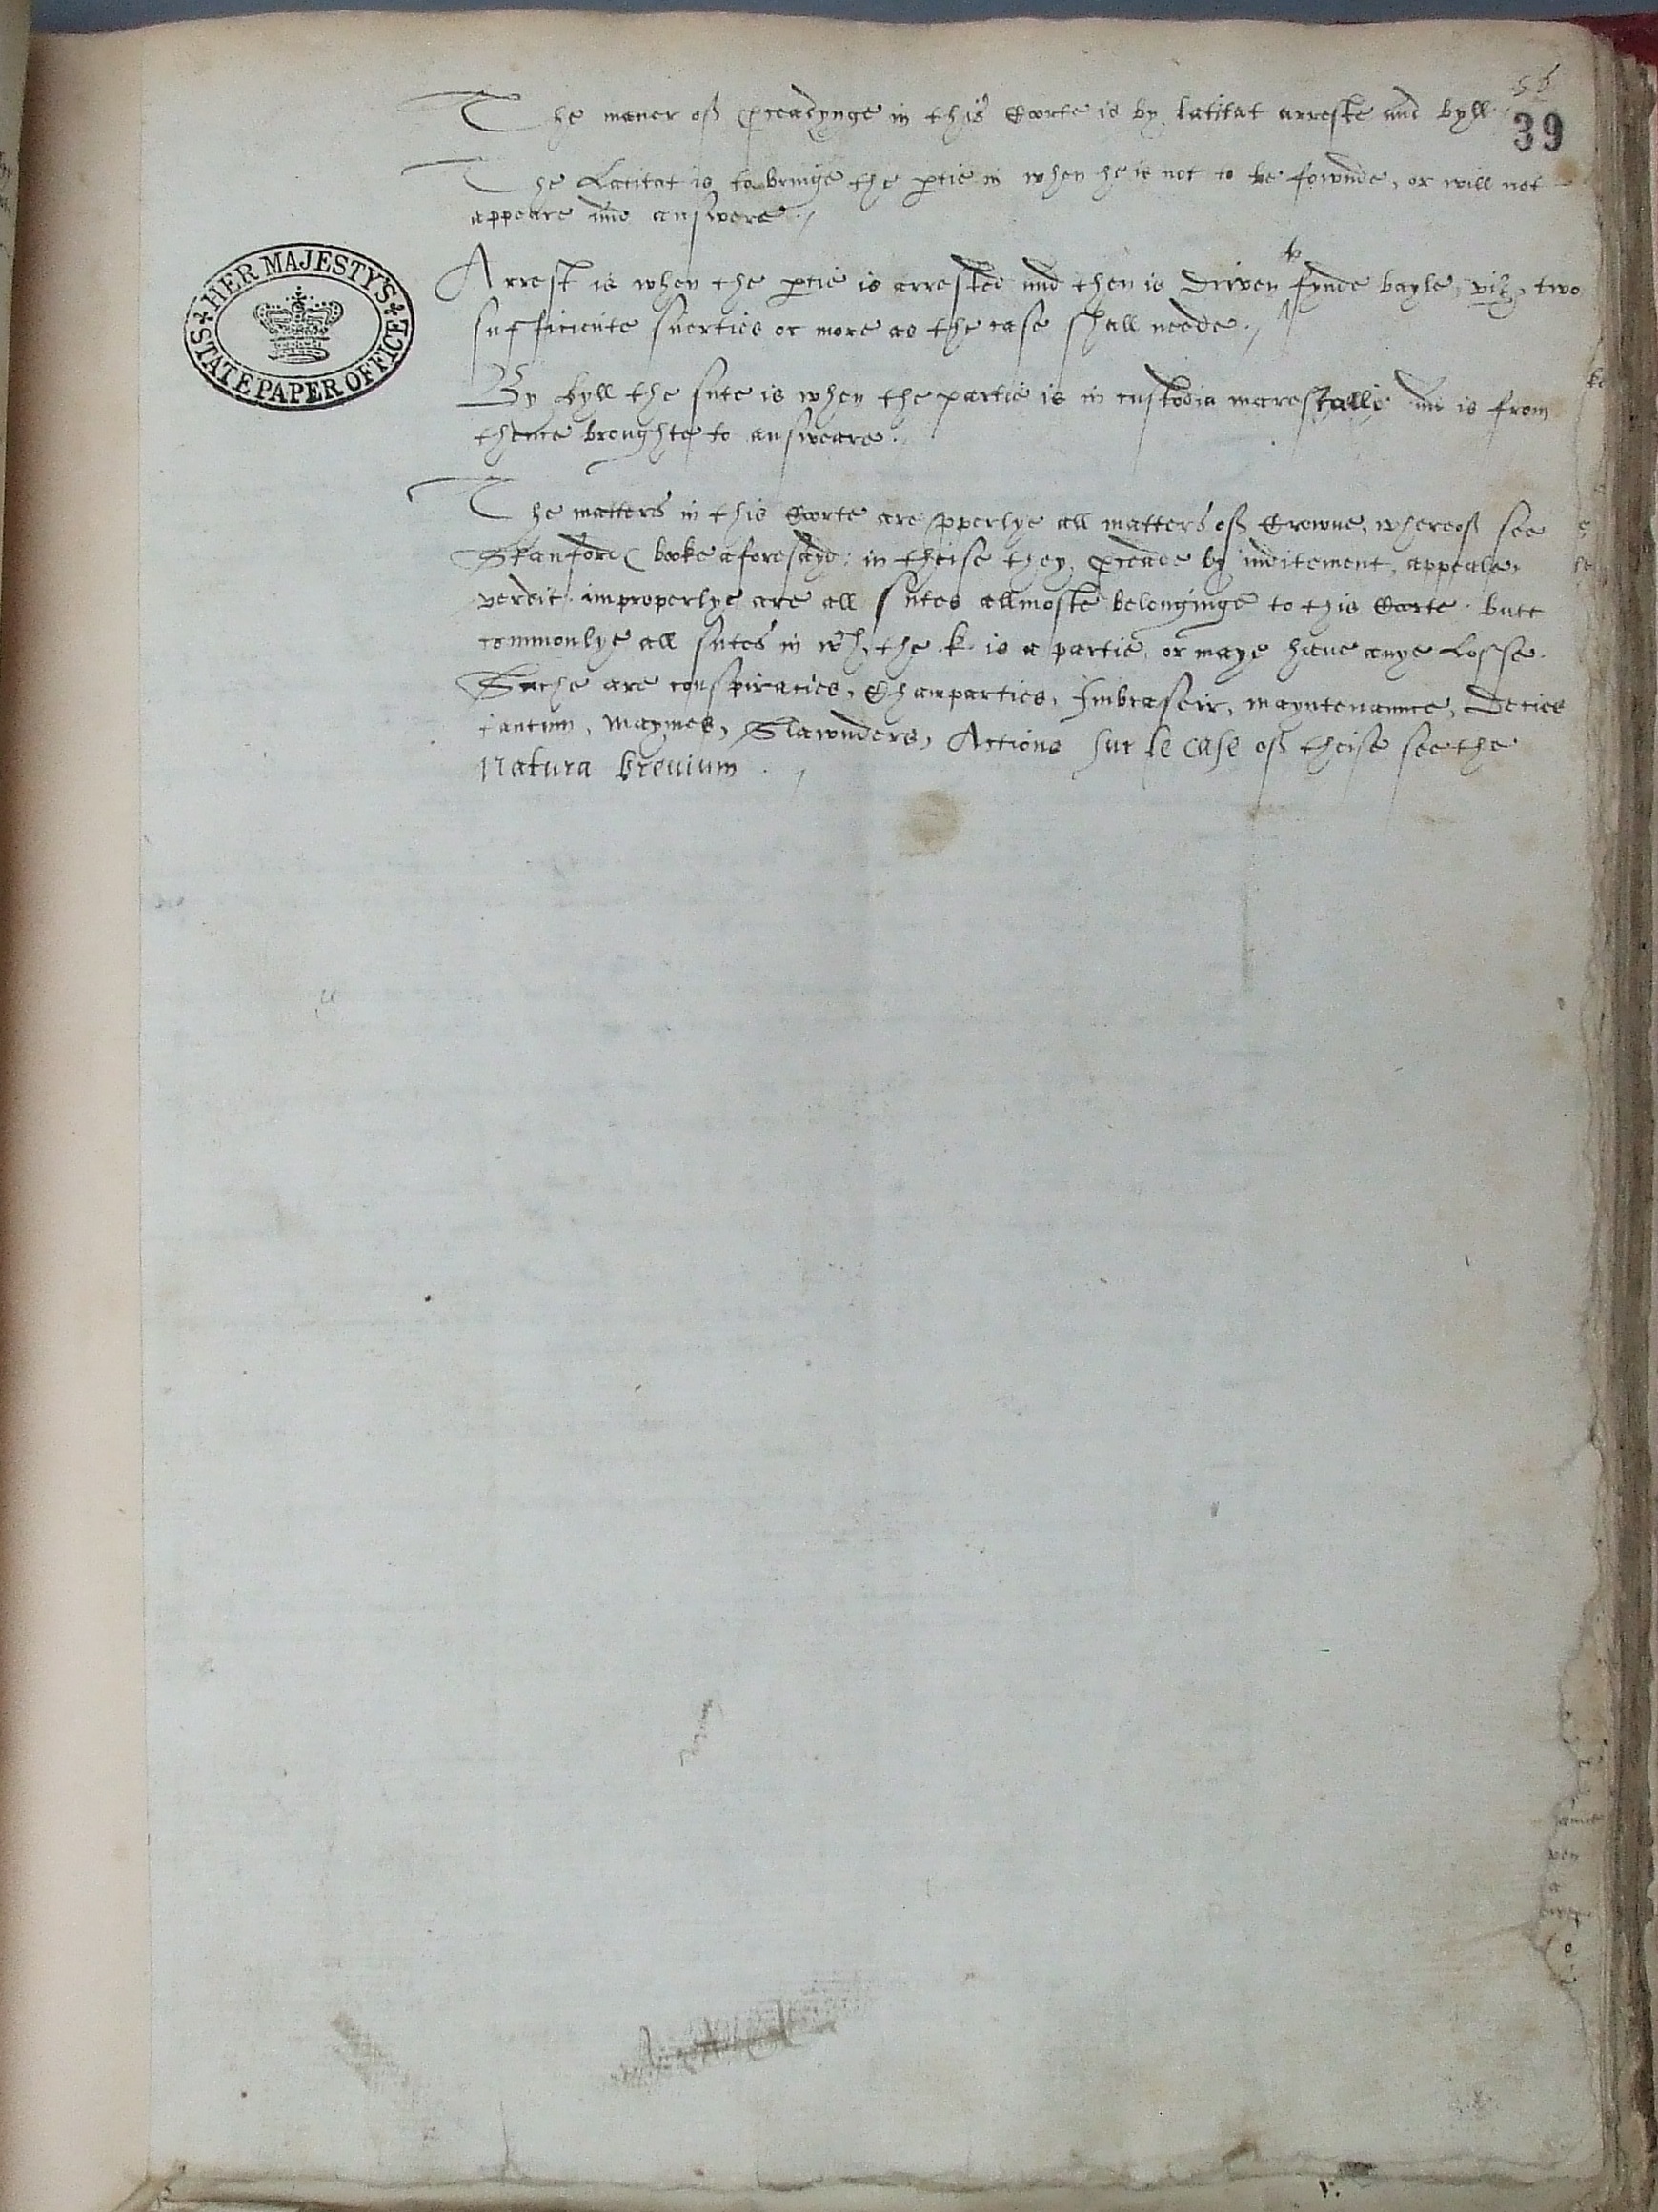 39
The maner off proceadynge in this Coorte is by latitat arreste and byll
The Latitat is to bringe the ptie in when he is not to be fownde, or will not
appeare and answere.
HER MAJESTY'S
STATE PAPER OFFICE
Arrest is when the ptie is arrested and then is driven to fynde bayle, viz, two
sufficiente suerties or more as the case shall neede.
By byll the sute is when the partie is in custodia marescalli and is from
thence broughte to answeare.
The matters in this Coorte are pperlye all matters off Crowne, whereoff see
Stanford booke aforesayd: in theise they proceade by inditement, appeale,
verdit. improperlye are all sutes allmoste belonginge to this Coorte. butt
commonlye all sutes in wch the .k. is a partie, or maye have anye Losse.
Suche are conspiracies, Champarties, Imbraseir, mayntenannce, Decies
tantum, Maymes, Slawnders, Actions sur le case off theise see the
Natura brevium.